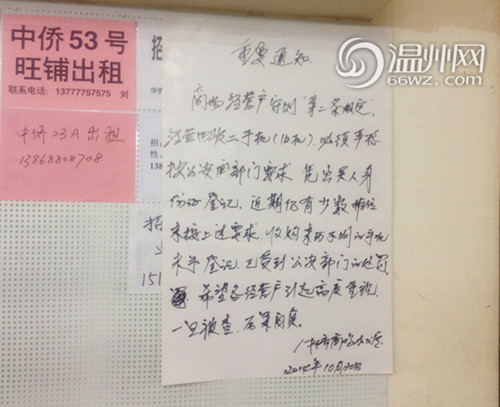 中侨53号
旺铺出租
联系电话：13777757575 刘
中侨23A出租
13868808708
招
中侨
招
性，
138
招
151
温州网
66wz.com
重要通知
商场经营户守则"第二条规定",
经营回收二手机(旧机),必须严格
按公安局部门要求,凭出买人身
份证登记,近期仍有少数摊位
未按上述要求,收购来历不明的手机
未予登记,已受到公安部门的处罚,
希望各经营户引起高度重视,
一旦被查,后果自负。
2014年10月20日